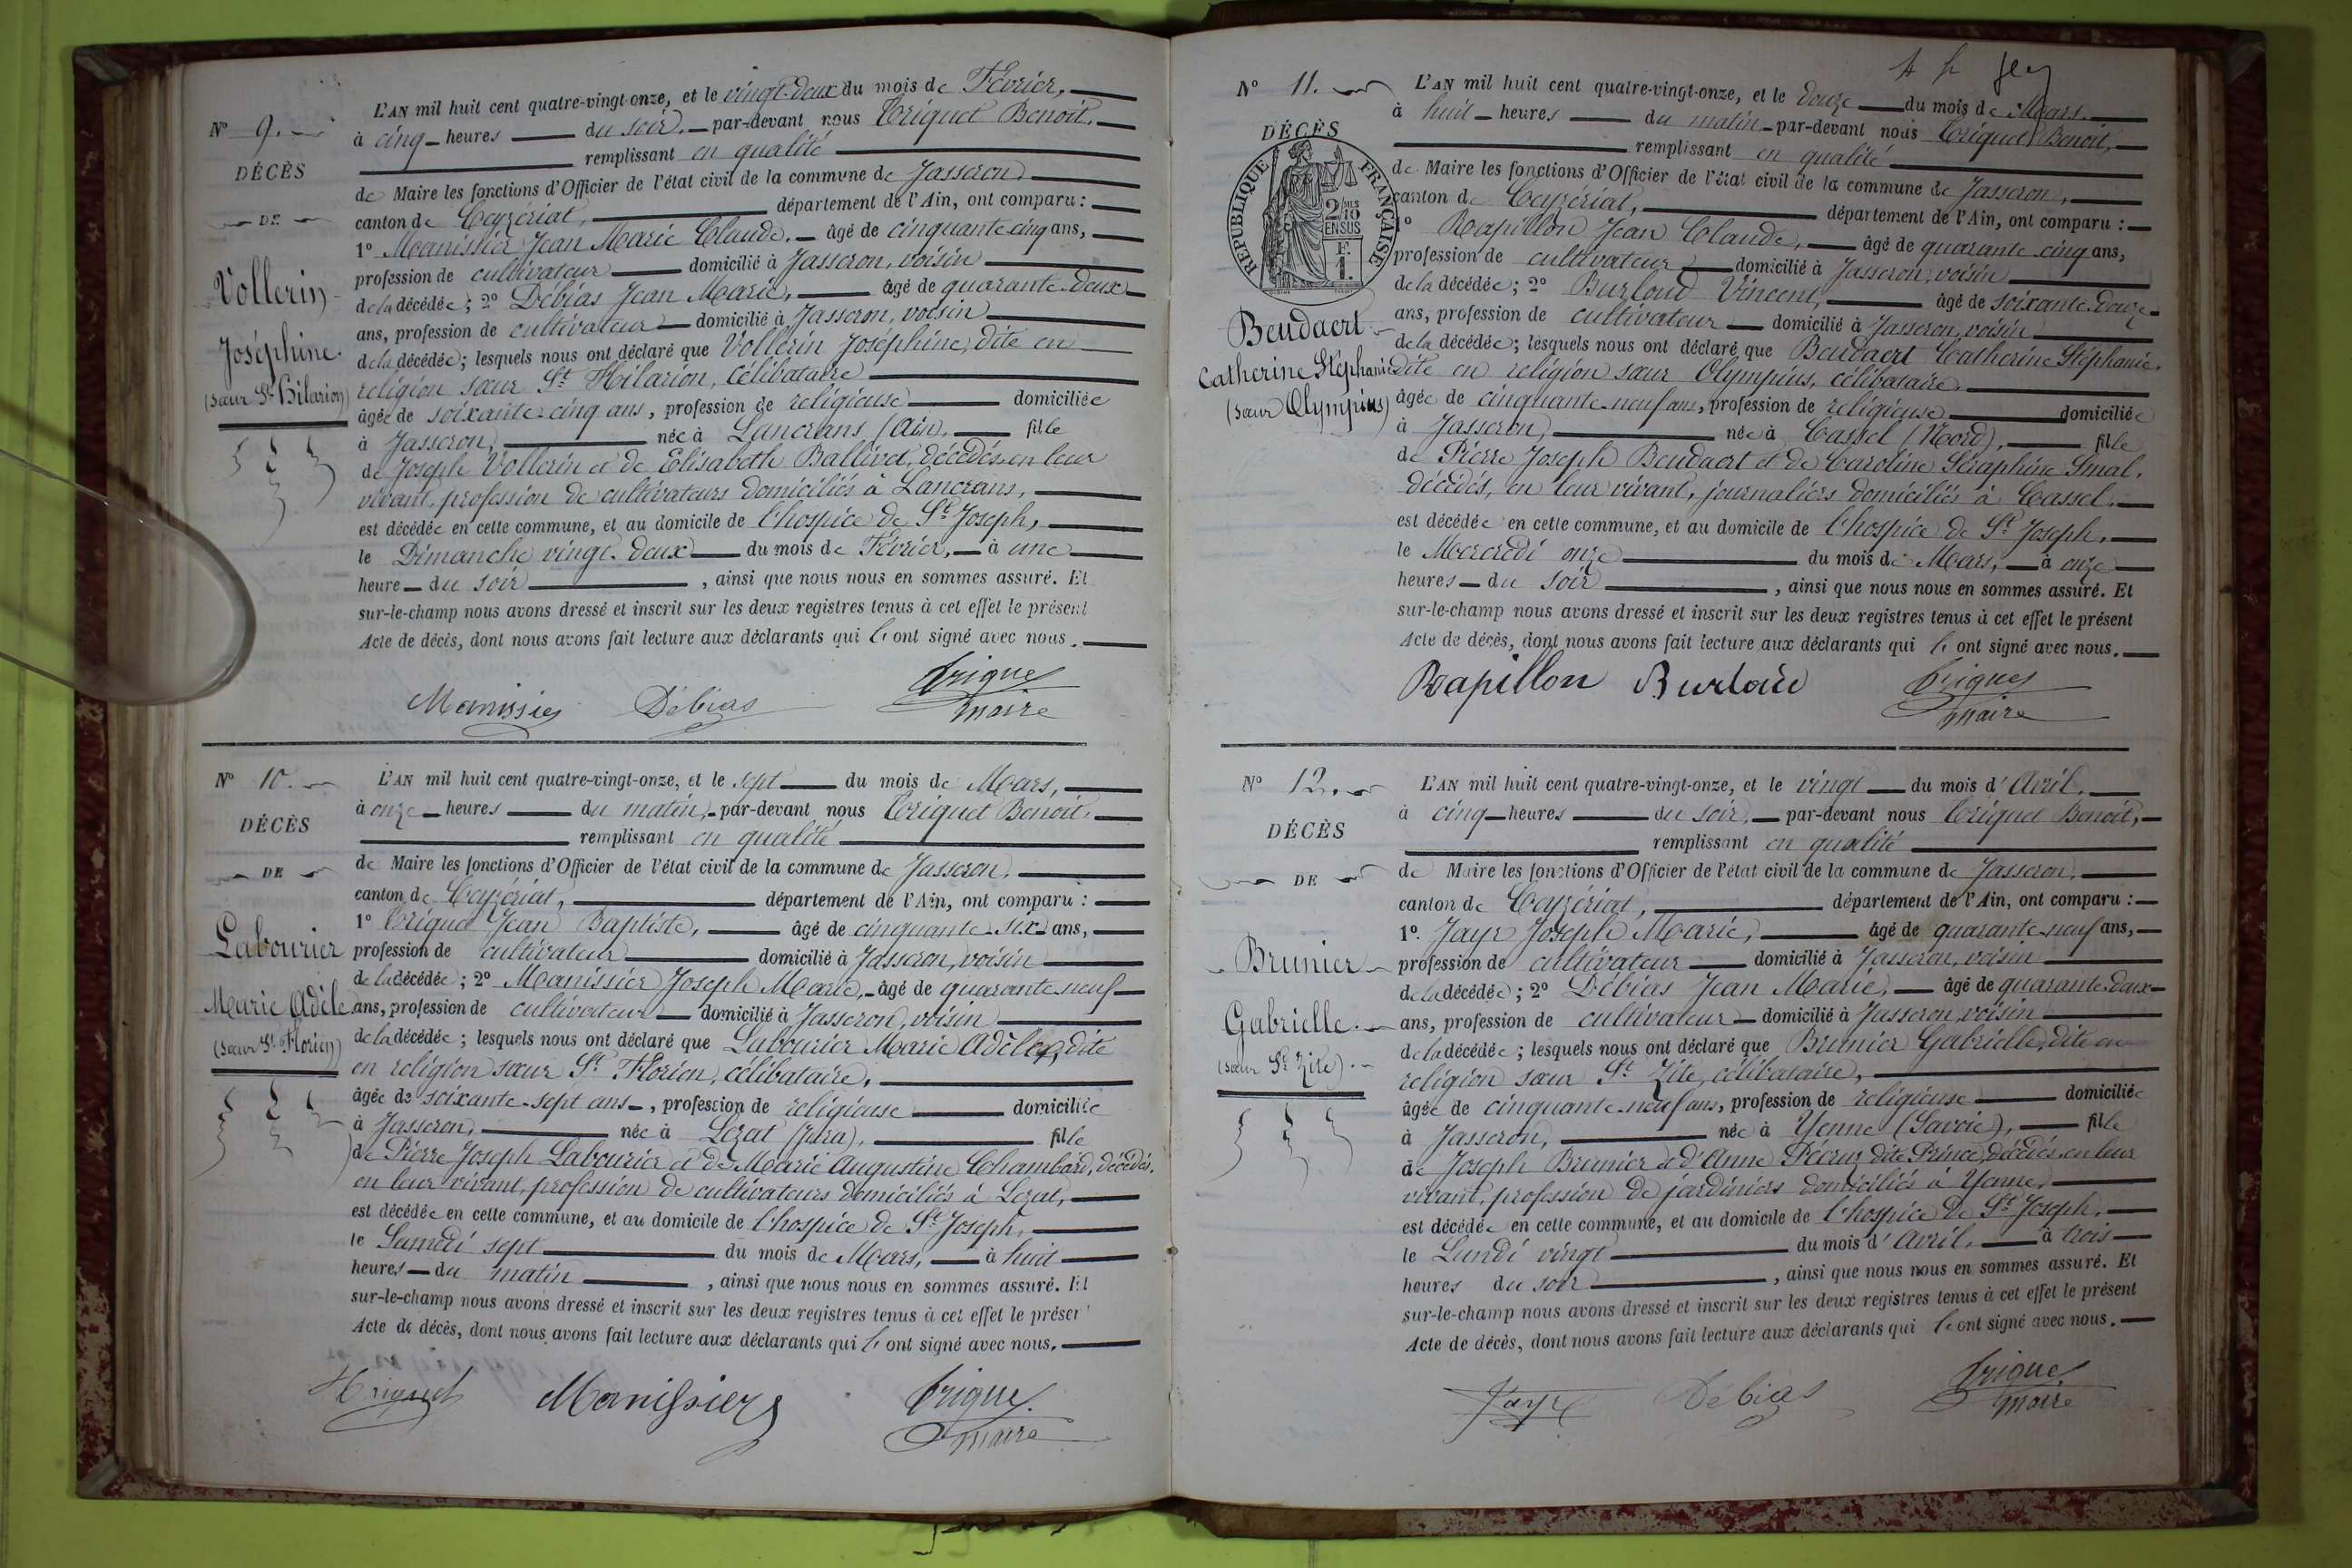 N° 9.
DÉCÈS
DE
Vollerin
Joséphine.
(Sœur St Hilarion)
L'AN mil huit cent quatre-vingt-onze, et le vingt-deux du mois de Février,
à cinq heures du soir, par-devant nous Triquet Benoit,
remplissant en qualité
de Maire les fonctions d'Officier de l'état civil de la commune de Jasseron
canton de Ceyzériat, département de l'Ain, ont comparu :
1° Manissier Jean Marie Claude, âgé de cinquante cinq ans,
profession de cultivateur domicilié à Jasseron, voisin
de la décédée ; 2° Débias Jean Marie, âgé de quarante-deux
ans, profession de cultivateur domicilié à Jasseron, voisin
de la décédée ; lesquels nous ont déclaré que Vollerin Joséphine, dite en
religion sœur St Hilarion, célibataire
âgée de soixante-cinq ans, profession de religieuse domiciliée
à Jasseron, née à Lancrans (Ain), fille
de Joseph Vollerin et de Elisabeth Ballivet, décédés en leur
vivant, profession de cultivateurs domiciliés à Lancrans,
est décédée en cette commune, et au domicile de l'hospice de St Joseph,
le Dimanche vingt-deux du mois de Février, à une
heure du soir, ainsi que nous nous en sommes assuré. Et
sur-le-champ nous avons dressé et inscrit sur les deux registres tenus à cet effet le présent
Acte de décès, dont nous avons fait lecture aux déclarants qui l'ont signé avec nous.
Manissier Débias Triquet
maire
N° 10.
DÉCÈS
DE
Labourier
Marie Adèle
(Sœur St Florien)
L'AN mil huit cent quatre-vingt-onze, et le sept du mois de Mars,
à onze heures du matin, par-devant nous Triquet Benoit,
remplissant en qualité
de Maire les fonctions d'Officier de l'état civil de la commune de Jasseron,
canton de Ceyzériat, département de l'Ain, ont comparu :
1° Triquet Jean Baptiste, âgé de cinquante-six ans,
profession de cultivateur domicilié à Jasseron, voisin
de la décédée ; 2° Manissier Joseph Marie, âgé de quarante-neuf
ans, profession de cultivateur domicilié à Jasseron, voisin
de la décédée ; lesquels nous ont déclaré que Labourier Marie Adèle, dite
en religion sœur St Florien, célibataire,
âgée de soixante-sept ans, profession de religieuse domiciliée
à Jasseron, née à Lezat (Jura), fille
de Pierre Joseph Labourier et de Marie Augustine Chambard, décédés,
en leur vivant, profession de cultivateurs domiciliés à Lezat,
est décédée en cette commune, et au domicile de l'hospice de St Joseph,
le Samedi sept du mois de Mars, à huit
heures du matin, ainsi que nous nous en sommes assuré. Et
sur-le-champ nous avons dressé et inscrit sur les deux registres tenus à cet effet le présent
Acte de décès, dont nous avons fait lecture aux déclarants qui l'ont signé avec nous.
Triquet Manissier Triquet
maire
N° 11.
DÉCÈS
RÉPUBLIQUE FRANÇAISE
2/10 EN SUS
F. 1.
Beudaert
Catherine Stéphanie
(Sœur Olympius)
L'AN mil huit cent quatre-vingt-onze, et le douze du mois de Mars.
à huit heures du matin, par-devant nous Triquet Benoit,
remplissant en qualité
de Maire les fonctions d'Officier de l'état civil de la commune de Jasseron,
canton de Ceyzériat, département de l'Ain, ont comparu :
1° Rapillon Jean Claude, âgé de quarante cinq ans,
profession de cultivateur domicilié à Jasseron, voisin
de la décédée ; 2° Burloud Vincent, âgé de soixante-douze
ans, profession de cultivateur domicilié à Jasseron, voisin
de la décédée ; lesquels nous ont déclaré que Beudaert Catherine Stéphanie,
dite en religion sœur Olympius, célibataire,
âgée de cinquante-neuf ans, profession de religieuse domiciliée
à Jasseron, née à Cassel (Nord), fille
de Pierre Joseph Beudaert et de Caroline Séraphine Smal,
décédés, en leur vivant, journaliers domiciliés à Cassel,
est décédée en cette commune, et au domicile de l'hospice de St Joseph,
le Mercredi onze du mois de Mars, à onze
heures du soir, ainsi que nous nous en sommes assuré. Et
sur-le-champ nous avons dressé et inscrit sur les deux registres tenus à cet effet le présent
Acte de décès, dont nous avons fait lecture aux déclarants qui l'ont signé avec nous.
Rapillon Burloud Triquet
maire
N° 12.
DÉCÈS
DE
Brunier
Gabrielle.
(sœur Ste Zite).
L'AN mil huit cent quatre-vingt-onze, et le vingt du mois d'Avril,
à cinq heures du soir, par-devant nous Triquet Benoit,
remplissant en qualité
de Maire les fonctions d'Officier de l'état civil de la commune de Jasseron,
canton de Ceyzériat, département de l'Ain, ont comparu :
1°. Jayr Joseph Marie, âgé de quarante-neuf ans,
profession de cultivateur domicilié à Jasseron, voisin
de la décédée ; 2° Débias Jean Marie, âgé de quarante-deux
ans, profession de cultivateur domicilié à Jasseron, voisin
de la décédée ; lesquels nous ont déclaré que Brunier Gabrielle, dite en
religion sœur Ste Zite, célibataire,
âgée de cinquante-neuf ans, profession de religieuse domiciliée
à Jasseron, née à Yenne (Savoie), fille
de Joseph Brunier et d'Anne dite Prince, décédés en leur
vivant, profession de jardiniers domiciliés à Yenne,
est décédée en cette commune, et au domicile de l'hospice de St Joseph,
le Lundi vingt du mois d'Avril, à trois
heures du soir, ainsi que nous nous en sommes assuré. Et
sur-le-champ nous avons dressé et inscrit sur les deux registres tenus à cet effet le présent
Acte de décès, dont nous avons fait lecture aux déclarants qui l'ont signé avec nous.
Jayr Débias Triquet
maire